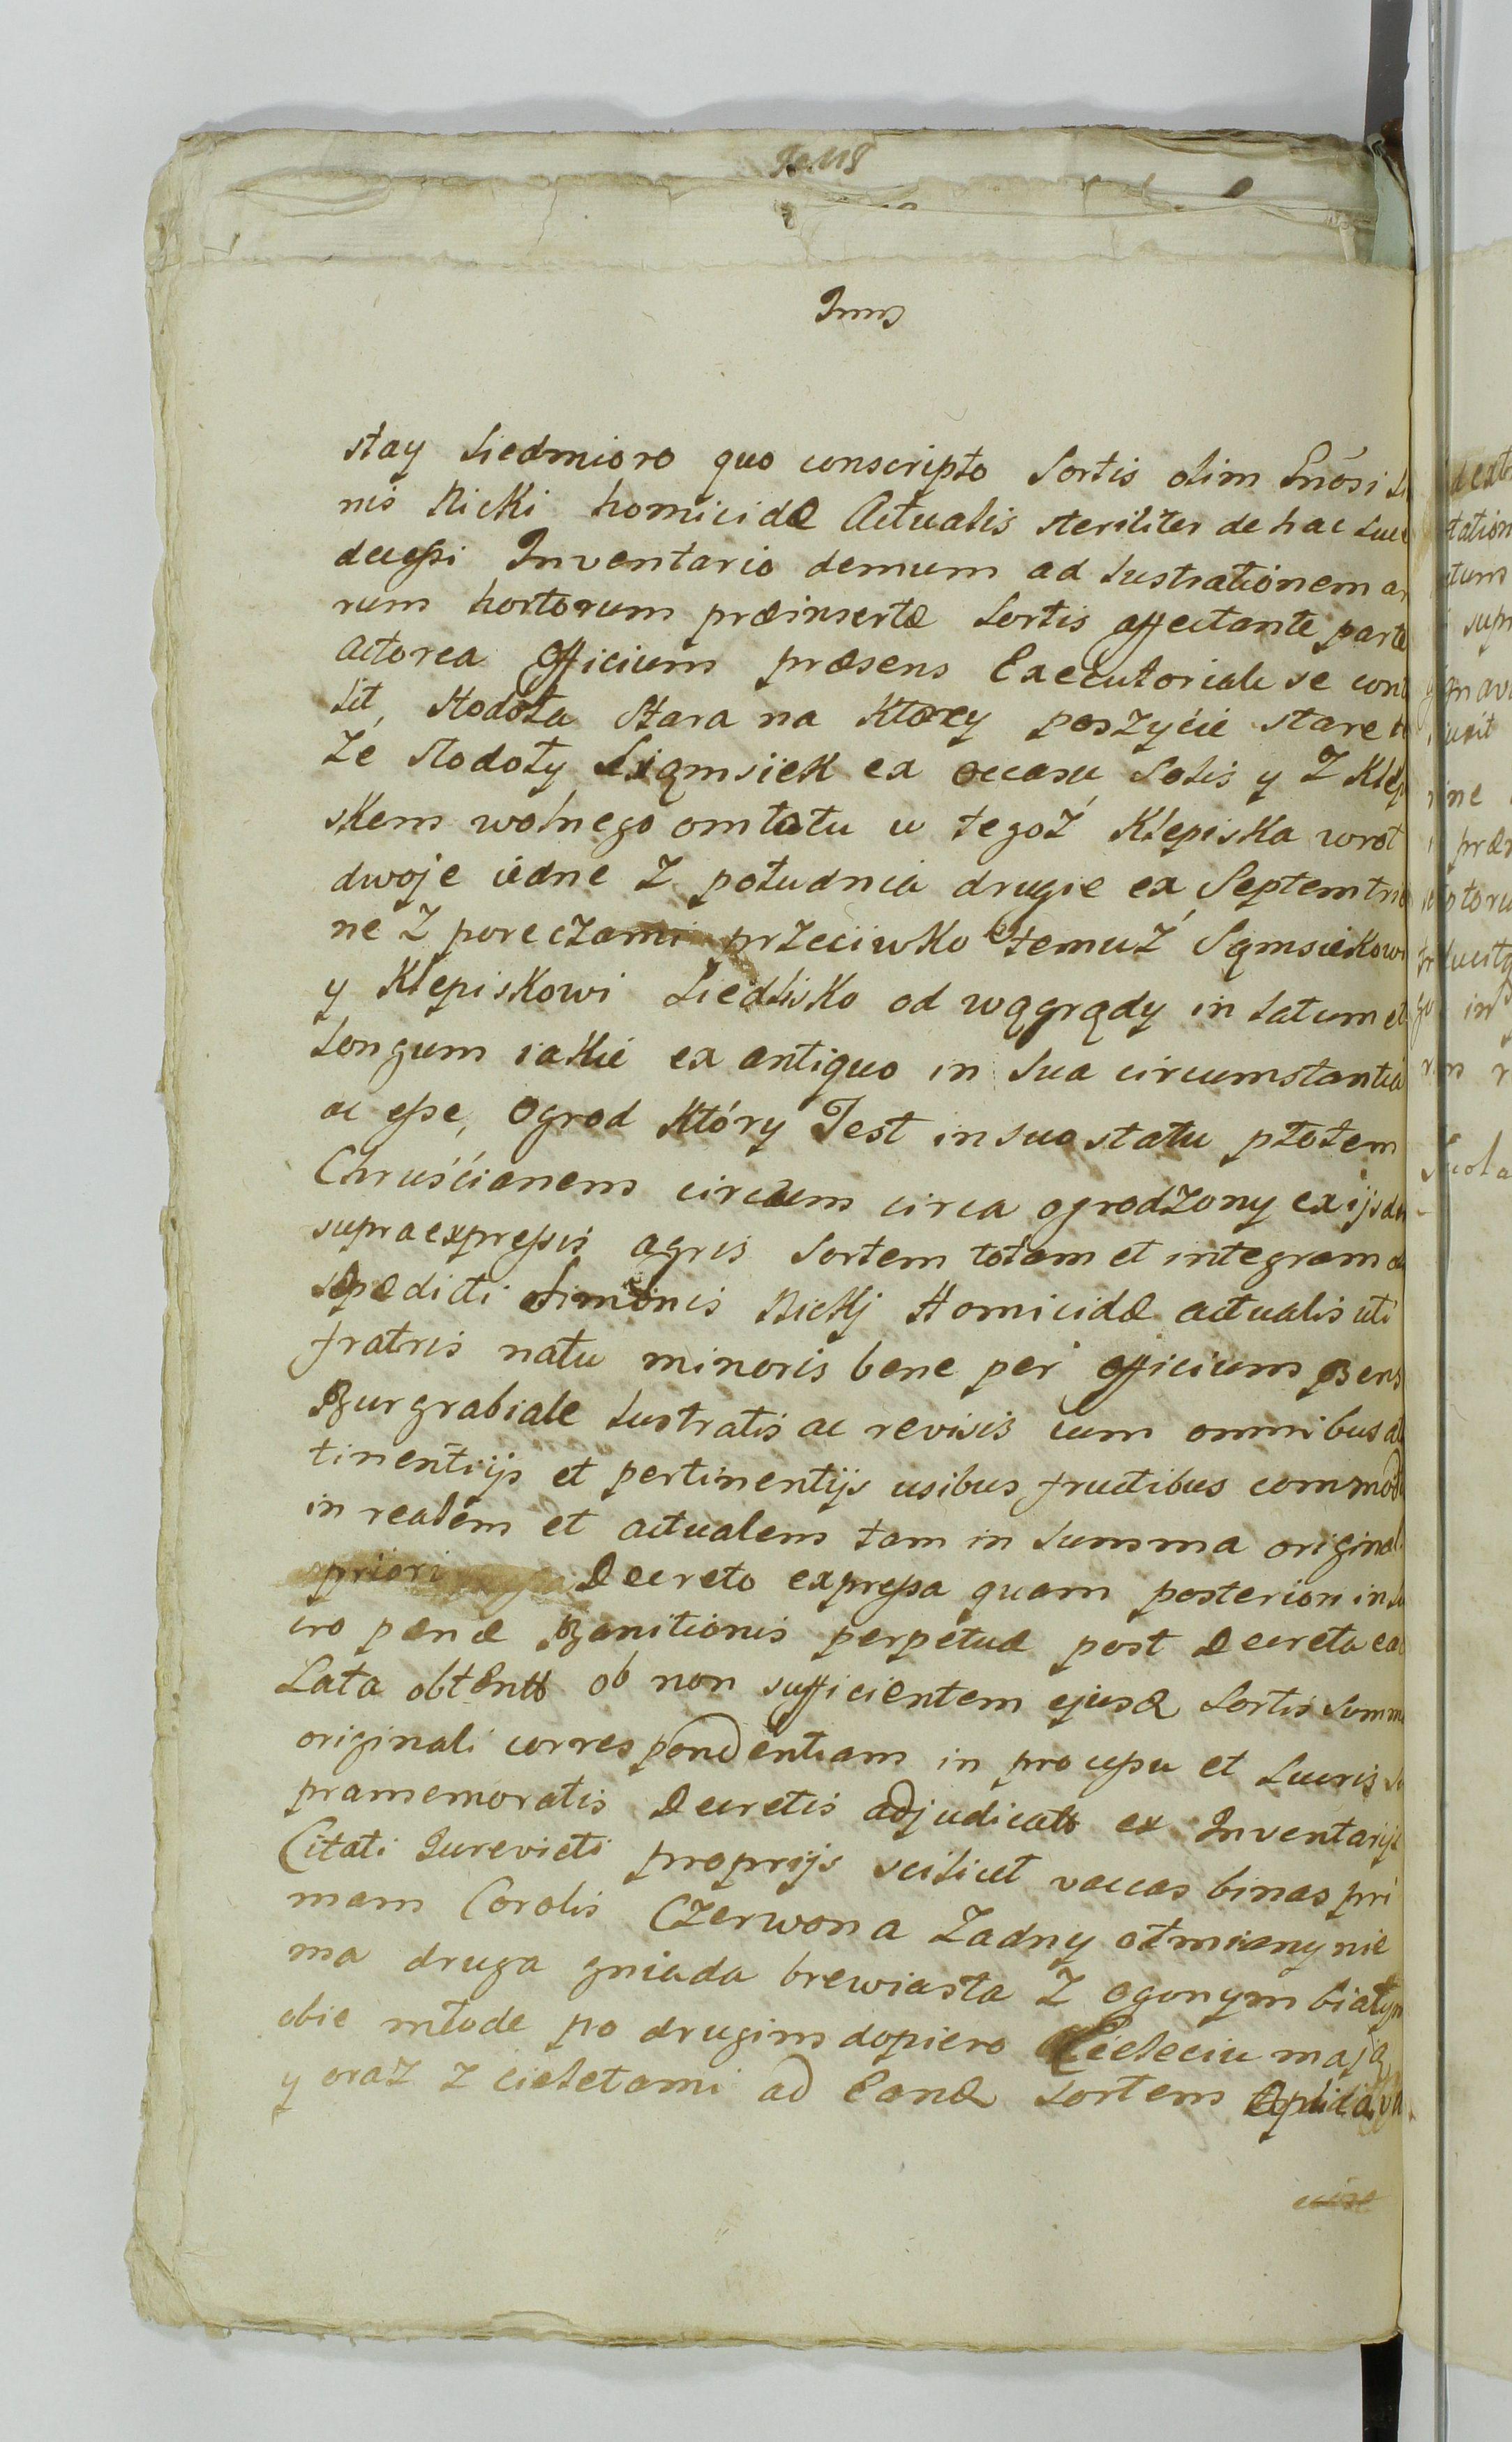 stay siedmioro quo conscripto Sortis olim Gnosi Si
nis Nicki homicidæ Actualis steriliter de hac luce
decessi Inventario demum ad lustrationem ar
rum hortorum præinsertæ Sortis affectante parte
Actorea Officium præsens Executoriale se cont
lit, Stodoła Stara na Ktory poszyćie stare
ze stodoły Sąmsiek ex occasu Solis y z Klep
skem wolnego omłotu u tegoż Klepiska wrot
dwoje iedne z południa drugie ex Septemtrio
ne z poreczami przeciwko temuż Sąmsiekowi
y Klepiskowi Siedlisko od wągrądy in latum et
longum iakie ex antiquo in sua circumstantia
ac esse, Ogrod Który Jest in suo statu płotem
Chruścianem circum circa ogrodzony ex ijsde
supraexpressis agris Sortem totam et integram
sæpedicti Simonis Nickj Homicidæ actualis uti
fratris natu minoris bene per officium præns
Burgrabiale lustratis ac revisis cum omnibus at
tinentijs et pertinentijs usibus fructibus commod
in realem et actualem tam in Summa original
priori Decreto expressa quam posteriori in lu
cro pænæ Banitionis perpetuæ post Decreta ea
Lata obtent ob non sufficientem ejusd Sortis Summæ
originali correspondentiam in processu et lucris Su
pramemoratis Decretis adjudicat ex Inventarijs
Citati Jurevicti proprijs scilicet vaccas binas pri
mam Coloris Czerwona Zadny otmieny nie
ma druga gniada brewiasta z ogonym białym
obie młode po drugim dopiero Cieleciu mają
y oraz z cieletami ad eand Sortem